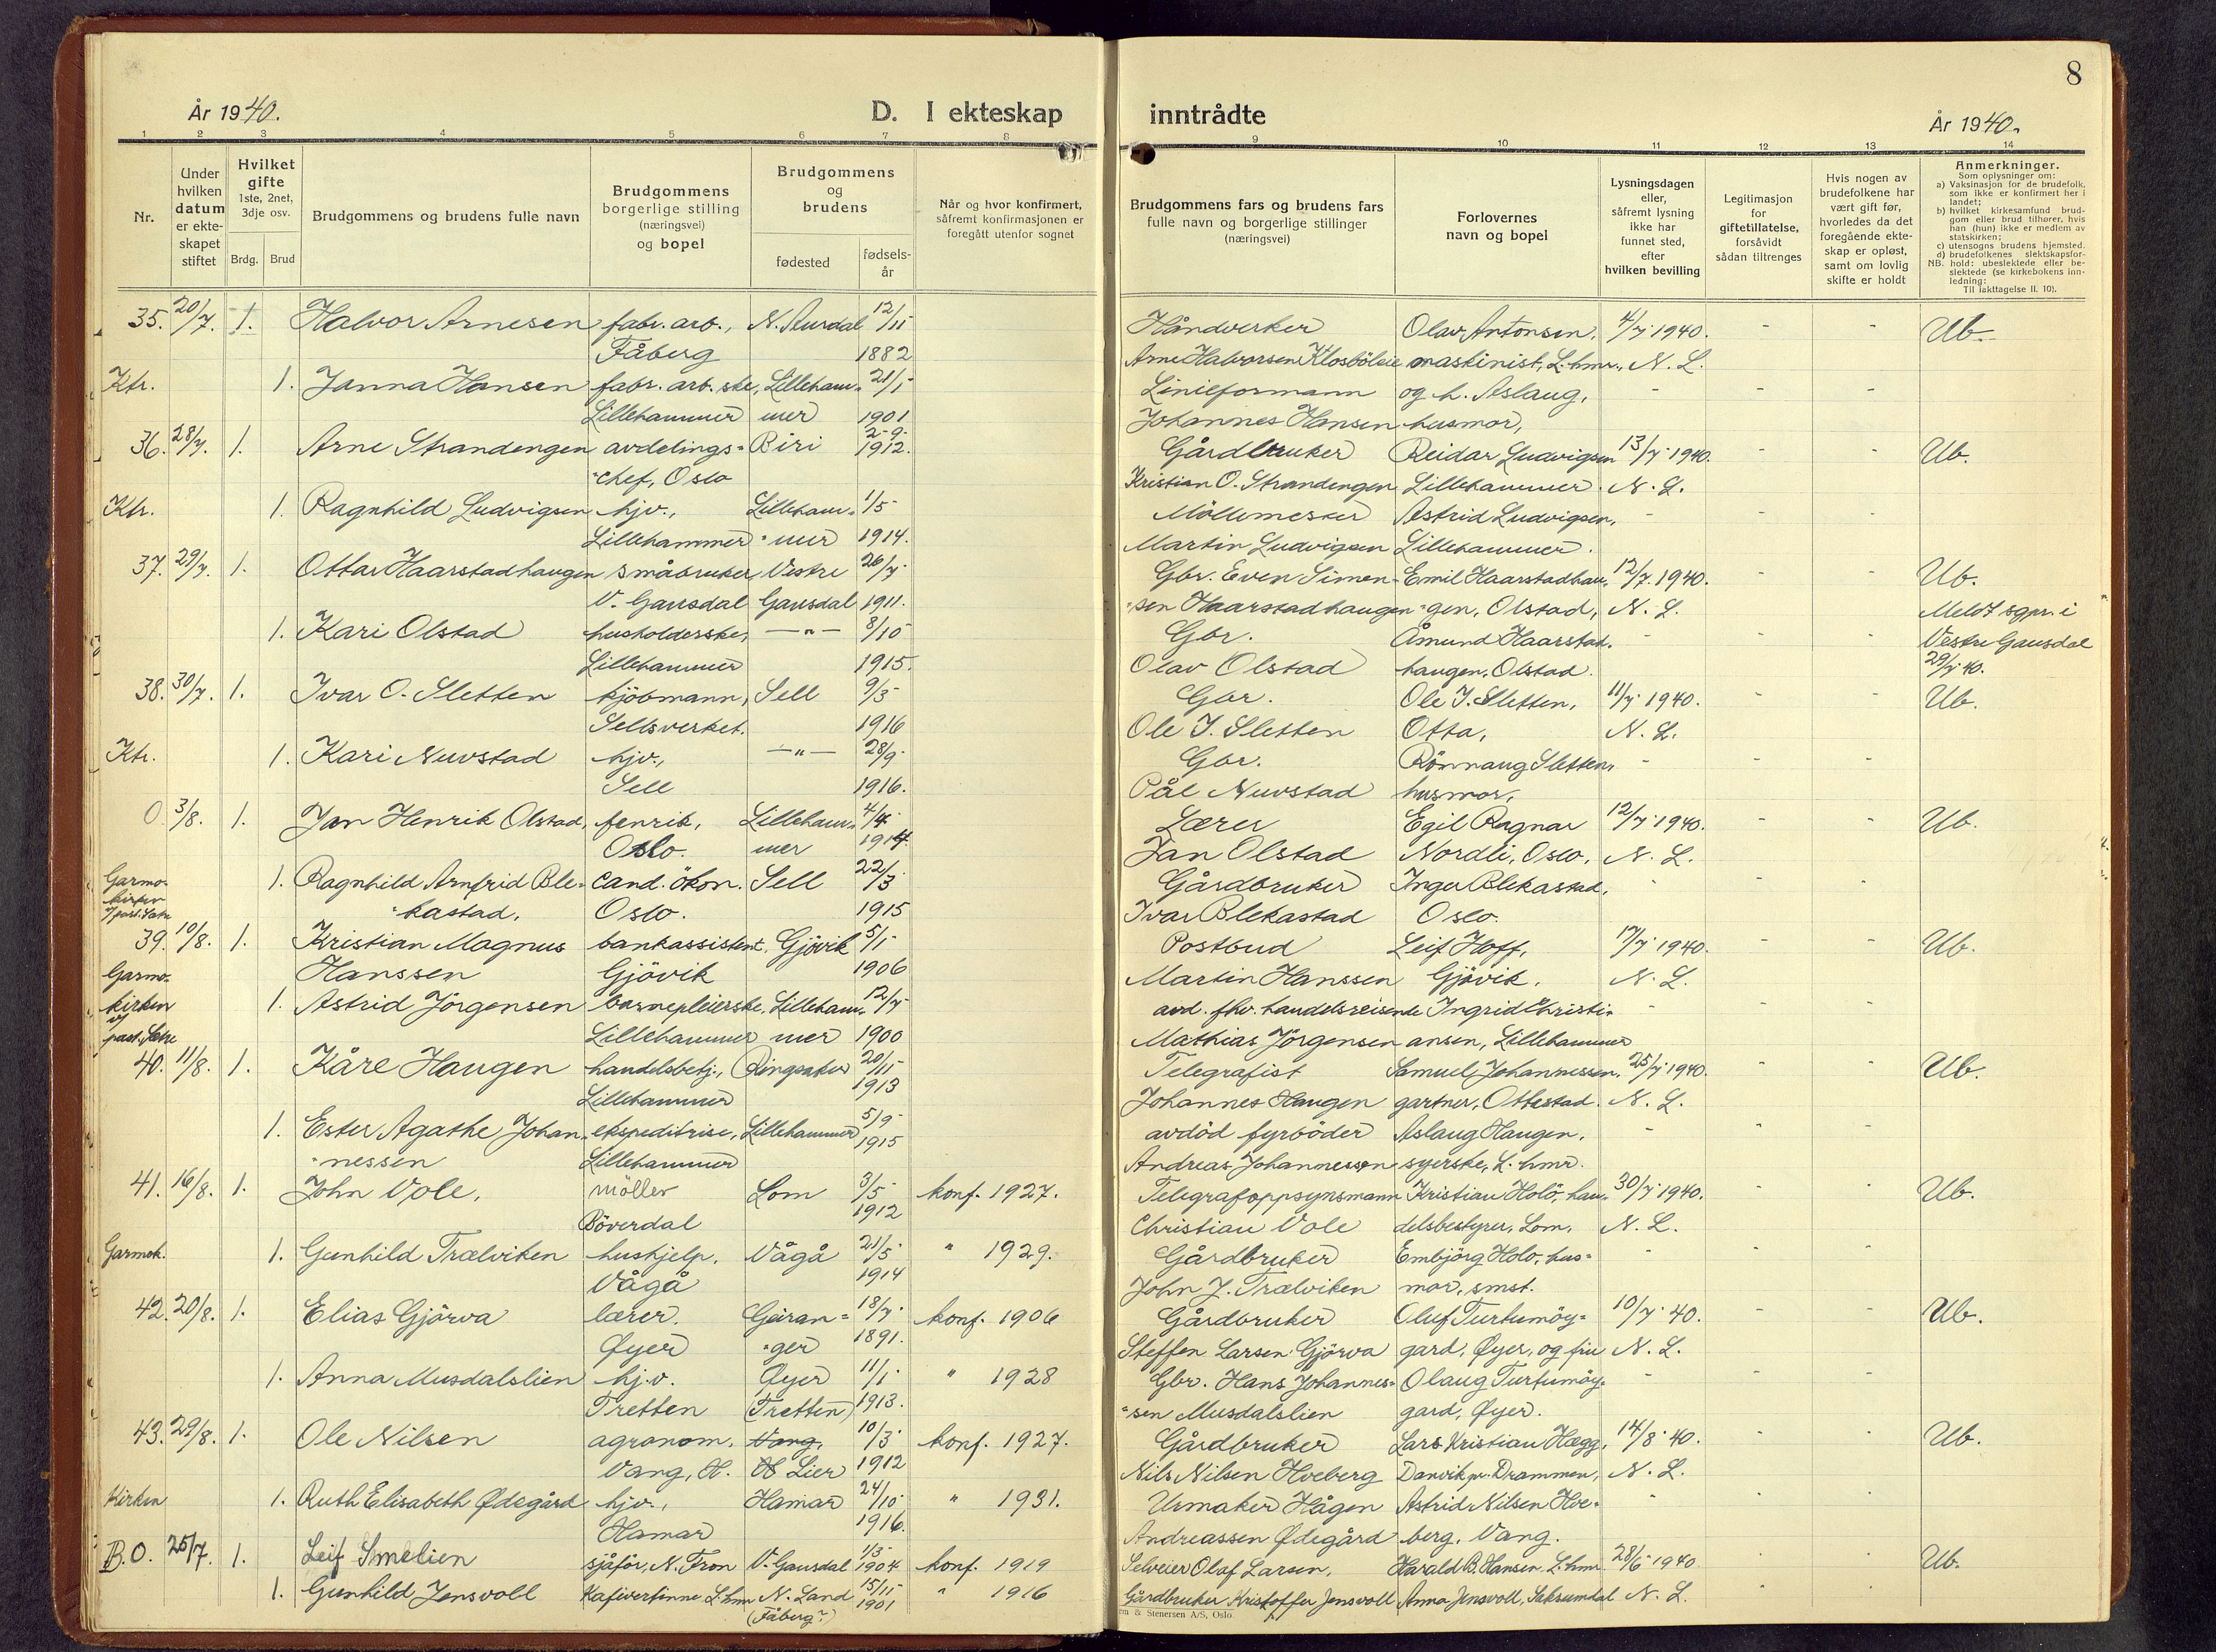 8
År 1940.
D. I ekteskap
inntrådte
År 1940.
1 2 3 4 5 6 7 8
9 10 11 12 13 14
Nr.
Under hvilken datum er ekte- skapet stiftet
Hvilket gifte 1ste, 2net, 3dje osv.
Brdg. Brud
Brudgommens og brudens fulle navn
Brudgommens borgerlige stilling (næringsvei) og bopel
Brudgommens og brudens
fødested
fødsels- år
Når og hvor konfirmert, såfremt konfirmasjonen er foregått utenfor sognet
Brudgommens fars og brudens fars fulle navn og borgerlige stillinger (næringsvei)
Forlovernes navn og bopel
Lysningsdagen eller, såfremt lysning ikke har funnet sted, efter hvilken bevilling
Legitimasjon for giftetillatelse, forsåvidt sådan tiltrenges
Hvis nogen av brudefolkene har vært gift før, hvorledes da det foregående ekte- skap er opløst, samt om lovlig skifte er holdt
Anmerkninger.
Som oplysninger om:
a) Vaksinasjon for de brudefolk, som ikke er konfirmert her i landet;
b) hvilket kirkesamfund brud- gom eller brud tilhører, hvis han (hun) ikke er medlem av statskirken;
c) utensogns brudens hjemsted.
d) brudefolkenes slektskapsfor- hold: ubeslektede eller be- slektede (se kirkebokens inn- ledning:
NB.
Til iakttagelse II. 10).
35. 20/7. 1. Halvor Arnesen fabr. arb., N. Aurdal 12/11 Håndverker Olav Antonsen, 4/7 1940. - - Ub.
Fåberg 1882 Arne Halvorsen Klosbøleie maskinist, L.hmr., N. L.
Ktr. 1. Janna Hansen fabr. arb. ske, Lilleham- 21/1 Linieformann og h. Aslaug, - - -
Lillehammer mer 1901 Johannes Hansen husmor,
36. 28/7. 1. Arne Strandengen avdelings- Biri 2-9- Gårdbruker Reidar Ludvigsen 13/7 1940. - - Ub.
-chef, Oslo 1912. Kristian O. Strandengen Lillehammer. N. L.
Ktr. 1. Ragnhild Ludvigsen hjv., Lilleham- 1/5 Möllemester Astrid Ludvigsen, - - -
Lillehammer -mer 1914. Martin Ludvigsen Lillehammer.
37. 29/7. 1. Ottar Haarstadhaugen småbruker, Vestre 26/7 Gbr. Even Simen- Emil Haarstadhau- 12/7. 1940. - - Ub.
V. Gausdal Gausdal 1911. -sen Haarstadhaugen -gen, Olstad, N. L. Meldt sgpr. i
1. Kari Olstad husholderske, —"— 8/10 Gbr. Åmund Haarstad- - - - Vestre Gausdal
Lillehammer 1915. Olav Olstad haugen, Olstad. 29/7 40.
38. 30/7. 1. Ivar O. Sletten kjöbmann, Sell 9/3 Gbr. Ole I. Sletten, 11/7 1940. - - Ub.
Sellsverket. 1916 Ole I. Sletten Otta, N. L.
Ktr. 1. Kari Nuvstad hjv., —"— 28/9 Gbr. Rönnaug Sletten, - - -
Sell 1916. Pål Nuvstad husmor,
0 3/8. 1. Jan Henrik Olstad, fenrik, Lilleham- 4/4 Lærer Egil Ragnar 12/7 1940. - - Ub.
Oslo. mer 1914. Jan Olstad Nordli, Oslo, N. L.
Garmo- kirken 1. Ragnhild Arnfrid Ble- cand. ökon. Sell 22/3 Gårdbruker Inger Blekastad, - - -
v/ past. Sætre -kastad, Oslo. 1915 Ivar Blekastad Oslo.
39. 10/8. 1. Kristian Magnus bankassistent, Gjövik 5/1 Postbud Leif Hoff, 17/7 1940. - - Ub.
Garmo- Hanssen Gjövik 1906 Martin Hanssen Gjövik, N. L.
kirken 1. Astrid Jörgensen barnepleierske, Lilleham- 12/7 avd. fhv. handelsreisende Ingrid Christi- - - -
v/ past. Sætre Lillehammer mer 1900 Mathias Jörgensen ansen, Lillehammer
40. 11/8. 1. Kåre Haugen handelsbetj., Ringsaker 20/11 Telegrafist Samuel Johannessen, 25/7 1940. - - Ub.
Lillehammer 1913 Johannes Haugen gartner, Ottestad. N. L.
1. Ester Agathe Johan- ekspeditrise, Lillehammer 5/9 avdöd fyrböder Aslaug Haugen, - - -
-nessen Lillehammer 1915 Andreas Johannessen syerske, L.hmr.
41. 16/8. 1. John Vole, möller Lom 3/5 konf. 1927. Telegrafoppsynsmann Kristian Holö, han- 30/7 1940. - - Ub.
Böverdal 1912 Christian Vole delsbestyrer, Lom, N. L.
Garmok. 1. Gunhild Trælviken hushjelp, Vågå 21/5 " 1929. Gårdbruker Embjörg Holö, hus- - - -
Vågå 1914 John J. Trælviken mor, smst.
42. 20/8. 1. Elias Gjörva lærer. Geiran- 18/7 konf. 1906 Gårdbruker Oluf Turtumöy- 10/7 40. - - Ub.
Øyer -ger 1891. Steffen Larsen Gjörva gard, Øyer, og fru N. L.
1. Anna Musdalslien hj.v. Øyer 11/1 " 1928 Gbr. Hans Johannes- Olaug Turtumöy- - - -
Tretten (Tretten) 1913. -sen Musdalslien gard, Øyer.
43. 29/8. 1. Ole Nilsen agronom. Vang, 10/3 konf. 1927. Gårdbruker Lars Kristian Hægg, 14/8 40. - - Ub.
Vang, H. Lier 1912 Nils Nilsen Hveberg Danvik pr. Drammen, N. L.
Kirken 1. Ruth Elisabeth Ødegård hjv., Hamar 24/10 " 1931. Urmaker Hågen Astrid Nilsen Hve- - - -
Hamar 1916. Andreassen Ødegård berg, Vang.
B.O. 25/7. 1. Leif Smelien sjåför, N. Fron V. Gausdal 1/3 1904 konf. 1919 Selveier Olaf Larsen, Harald B. Hansen, L.hmr 28/6 1940 - - Ub.
1. Gunhild Jensvoll Kafivertinne L.hmr N. Land 15/11 1901 " 1916 Gårdbruker Kristoffer Jensvoll Anna Jensvoll, Saksumdal N. L.
(Fåberg?)
& Stenersen A/S, Oslo